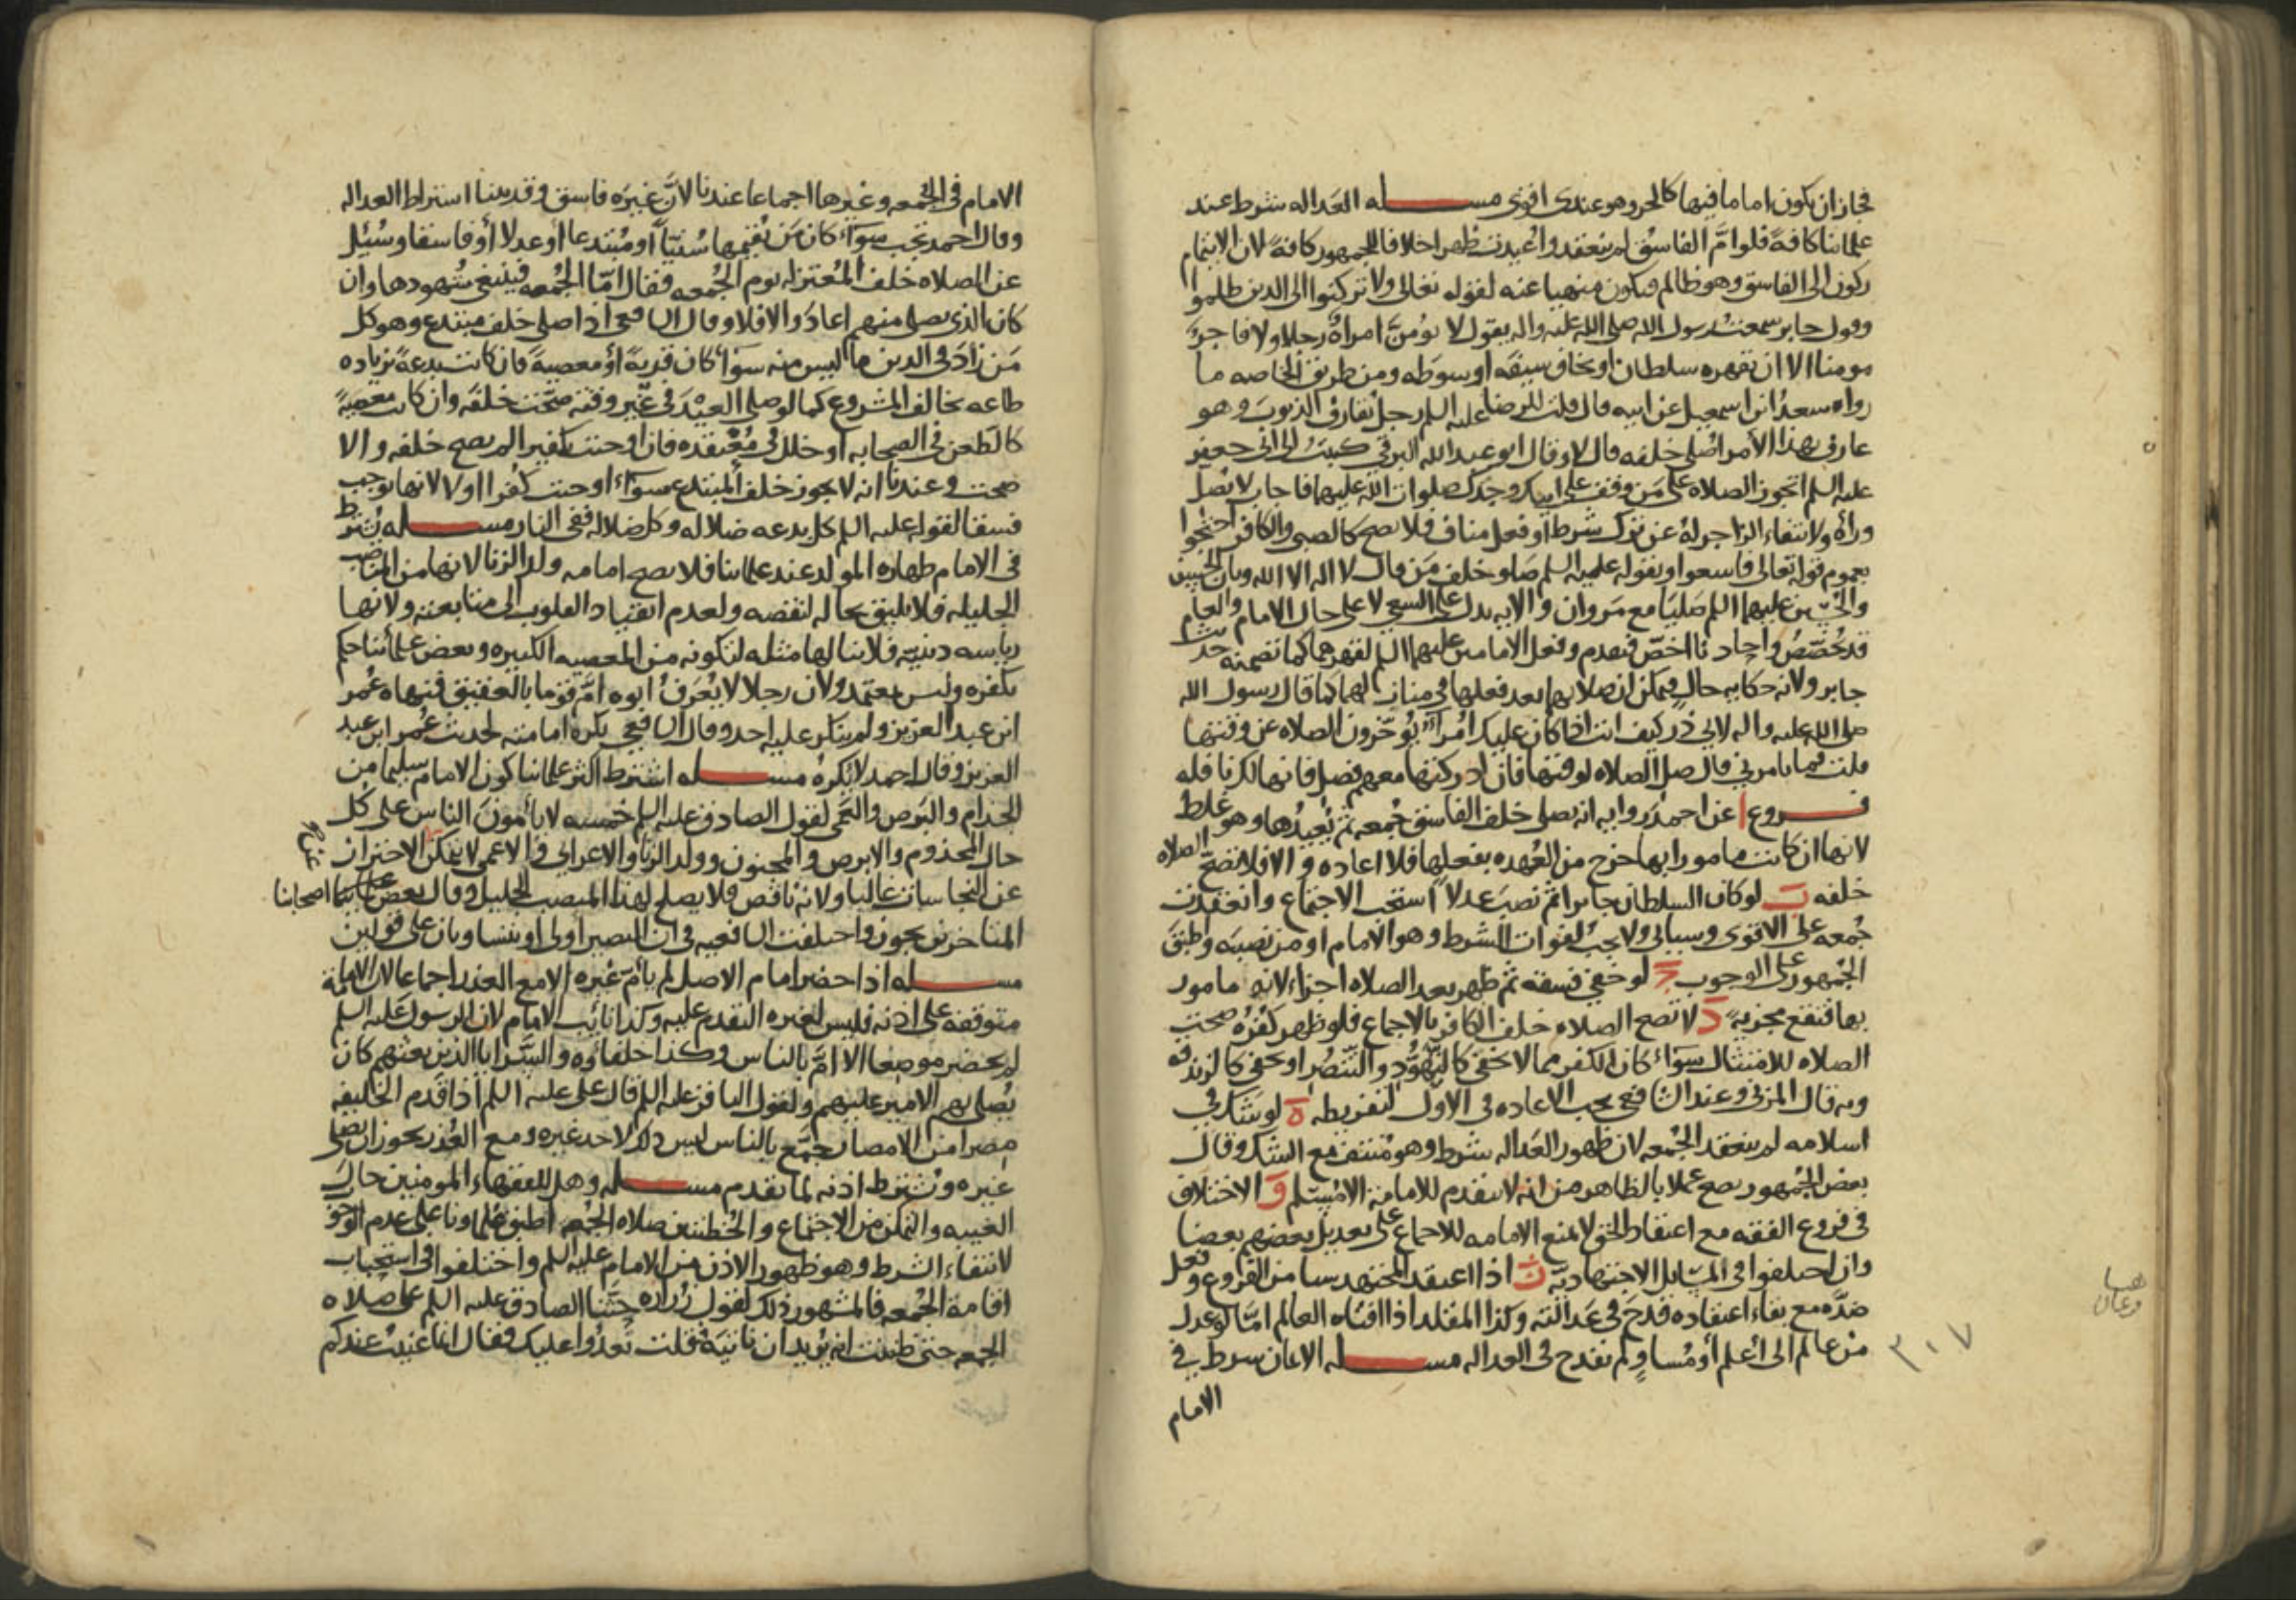 فجاز ان يكون اماما فيها كالحر وهو عندى اقوى مسـله العداله شرط عند
علمائنا كافةً فلو امَّ الفاسق لم تنعقد واُعيدت ظهرا خلافا للجمهور كافةً لان الايتمام
ركون الى الفاسق وهو ظالم فيكون منهيا عنه لقوله تعالى ولا تركنوا الى الذين ظلموا
وقول جابر سمعت رسول الله صلى الله عليه واله يقول لا تؤمنّ امراةٌ رجلا ولا فاجرٌ
مومنا الا ان يقهره سلطان او يخاف سيفه او سوطه ومن طريق الخاصه ما
رواه سعد ابن اسمعيل عن ابيه قال قلت للرضا عليه السلم رجل يقارف الذنوب وهو
عارف بهذا الأمر اصلى خلفه قال لا وقال ابو عبد الله البرقى كتبتُ الى ابى جعفر
عليه السلم اتجوز الصلاه على من وقف على ابيك وجدك صلوات الله عليهما فاجاب لا تصل
وراه ولانتفاء الزاجر له عن ترك شرط او فعل مناف فلا يصح كالصبى والكافر احتجوا
بعموم قوله تعالى فاسعوا وبقوله عليه السلم صلوا خلف من قال لا اله الا الله وبان الحسن
والحسين عليهما السلم صليا مع مروان والايه تدل على السعى لا على حال الامام والعام
قد يُخصّصُ واحاديثنا اخصّ فتقدم وفعل الامامين عليهما السلم لقهرهما كما تضمنه حديث
جابر ولانه حكايه حالٍ فيمكن ان صلاتهما بعد فعلها فى منازلهما كما قال رسول الله
صلى الله عليه واله لابى ذر كيف انت اذا كان عليك امراءُ يؤخّرون الصلاه عن وقتها
قلت فما تامرنى قال صل الصلاه لوقتها فان ادركتها معهم فصل فانها لك نافله
فـروع ا عن احمد روايه انه يصلى خلف الفاسق جُمعه ثم يُعيدُها وهو غلط
لانها ان كانت مامورا بها خرج من العُهده بفعلها فلا اعاده والا فلا تصحّ الصلاه
خلفه ب لو كان السلطان جايرا ثم نصب عدلاً استحب الاجتماع وانعقدت
جُمعه على الاقوى وسياتى ولا يجب لفوات الشرط وهو الامام او من نصبه واطبق
الجُمهور على الوجوب ج لو خفى فسقه ثم ظهر بعد الصلاه اجزاء لانه مامور
بها فتقع مجزيةً د لا تصح الصلاه خلف الكافر بالاجماع فلو ظهر كفرُه صحت
الصلاه للامتثال سواء كان الكفر مما لا يخفى كالتهوُّد والتنصُّر او يخفى كالزندقه
وبه قال المزنى وعند الشافعى يجب الاعاده فى الاول لتفريطه ه لو شك فى
اسلامه لم ينعقد الجُمعه لان ظهور العداله شرط وهو مُنتف مع الشك وقال
بعض الجُمهور يصح عملا بالظاهر من انه لا يتقدم للامامه الا مُسلم و الاختلاف
فى فروع الفقه مع اعتقاد الحق لا يمنع الامامه للاجماع على تعديل بعضهم بعضا
وان اختلفوا فى المسايل الاجتهاديّه ز اذا اعتقد المجتهد شيا من الفروع وفعل
ضدّه مع بقاء اعتقاده قدح فى عدالته وكذا المقلد اذا افتاه العالم امّا لو عدل
من عالم الى اعلم او مُساوٍ لم يقدح فى العداله مسـله الايمان شرط فى
الامام
٣٠٧
الامام فى الجُمعه وغيرها اجماعا عندنا لانّ غيرَه فاسق وقد بينا اشتراط العداله
وقال احمد تجب سواءٌ كان من يُقيمها سُنيّاً او مُبتدعا او عدلا او فاسقا وسُئِل
عن الصلاه خلف المُعتزله يوم الجُمعه فقال امّا الجُمعه فينبغى شهودها وان
كان الذى يصلى منهم اعاد والا فلا وقال الشافعى اذا صلى خلف مبتدع وهو كل
مَن زاد فى الدين ما ليس منه سواءٌ كان قربةً اؤ معصيةً فان كانت بدعةً بزياده
طاعه تخالف المشروع كما لو صلى العيد فى غير وقته صحّت خلفَه وان كانت معصيةً
كالطعن فى الصحابه او خلل فى مُعتقده فان اوجبت تكفيرا لم يصح خلفه والا
صحت وعندنا انه لا يجوز خلف المبتدع سواءٌ اوجبت كفرا او لا لانها توجب
فسقا لقوله عليه السلم كل بدعه ضلاله وكل ضلاله فى النار مسـله يُشترط
فى الامام طهاره المولد عند علمائنا فلا يصح امامه ولد الزنا لانها من المناصب
الجليله فلا يليق بحاله لنقصه ولعدم انقياد القلوب الى متابعته ولانها
رياسه دينيّه فلا ينالها مثله لتكونه من المعصيه الكبيره وبعض علمائنا حكم
بكفره وليس بمعتمد ولان رجلا لا يُعرف ابوه امَّ قوما بالعقيق فنهاه عُمر
ابن عبد العزيز ولم ينكر عليه احد وقال الشافعى يكره امامته لحديث عُمر ابن عبد
العزيز وقال احمد لا يكرهُ مسـله اشترط اكثر علمائنا كون الامام سليما من
الجذام والبرص والعمى لقول الصادق عليه السلم خمسه لا يأمّون الناس على كل
حال المجذوم والابرص والمجنون وولد الزنا والاعرابى والاعمى لا يمكن الاحتراز
عن النجاسات غالبا ولانه ناقص فلا يصلح لهذا المنصب الجليل وقال بعض اصحابنا
المتاخرين يجوز واختلفت الشافعيه فى ان البصير اولى او يتساويان على قولين
مسـله اذا حضر امام الاصل لم يأُمّ غيره الا مع العذر اجماعا لان الامامة
متوقفه على اذنه فليس لغيره التقدم عليه وكذا نايب الامام لان الرسول عليه السلم
لم يحضر موضعا الا امَّ بالناس وكذا خلفاؤه والسَّرايا الذين بعثهم كان
يُصلى بهم الامير عليهم ولقول الباقر عليه السلم قال على عليه السلم اذا قدم الخليفه
مصرا من الامصار جمَّع بالناس ليس ذلك لاحد غيره ومع العُذر يجوز ان يصلى
غيره ويُشترط اذنه لما تقدم مسـله وهل للفقهاء المومنين حال
الغيبه والتمكن من الاجتماع والخُطبتين صلاه الجُمعه اطبق علماونا على عدم الوجوب
لانتفاء الشرط وهو ظهور الاذن من الامام عليه السلم واختلفوا فى استحباب
اقامة الجُمعه فالمشهور ذلك لقول زُراره حثَّنا الصادق عليه السلم على صلاه
الجمعه حتى ظننت انه يُريد ان ناتيَهُ فقلت نَغدُوا عليك فقال انما عنيتُ عندكم